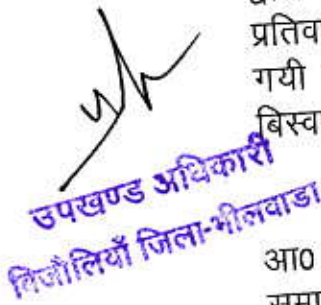 प्रतिव
गयी
बिस्व
उपखण्ड अधिकारी
बिजौलियाँ जिला-भीलवाडा
आ0